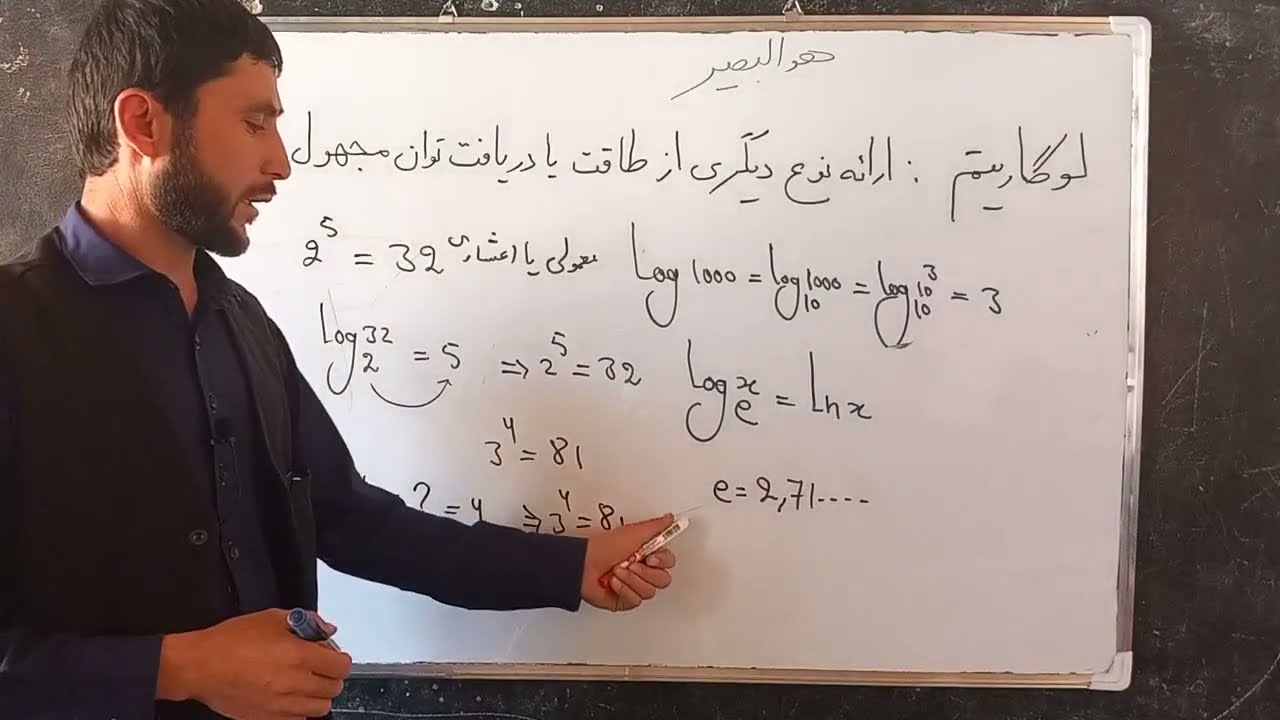 هو البصیر
لوگاریتم : ارائه نوع دیگری از طاقت یا دریافت توان مجهول
2^5 = 32
معمولی یا اعشاری log 1000 = log_10 1000 = log_10 10^3 = 3
log_2 32 = 5 ⇒ 2^5 = 32
log_e x = ln x
3^4 = 81
e = 2,71....
? = 4 ⇒ 3^4 = 81